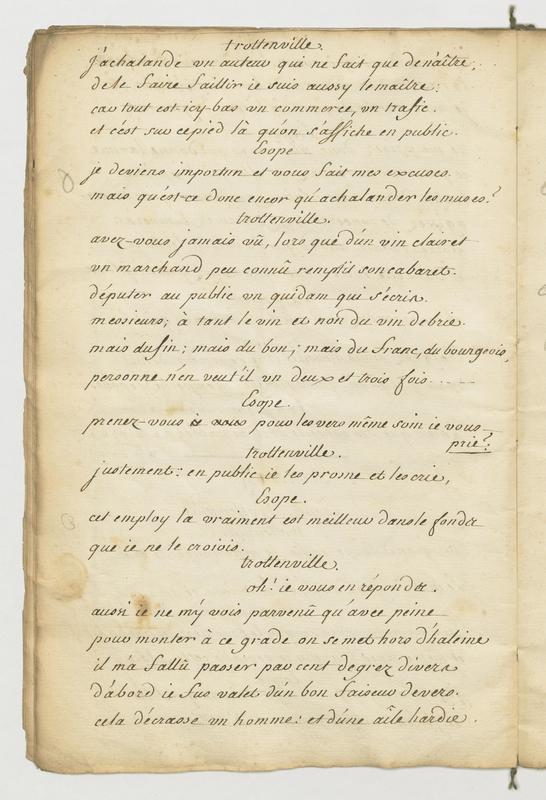 trottenville.
j'achalande vn auteur qui ne fait que de naître,
de le faire saillir ie suis aussy le maître:
car tout est icy bas vn commerce, vn trafic.
et c'est sur ce pied là qu'on s'affiche en public.
Esope
je deviens importun et vous fait mes excuses.
mais qu'est-ce donc encor qu'achalander les muses?
trottenville.
avez-vous jamais vû, lors que d'un vin clairet
vn marchand peu connû remplit son cabaret.
députer au public vn quidam qui s'écrie.
messieurs; à tant le vin et non du vin de brie.
mais du fin; mais du bon; mais du franc, du bourgeois,
personne n'en veut'il vn deux et trois fois . . . .
Esope.
prenez-vous pour les vers même soin ie vous
prie?
trottenville.
justement: en public ie les prosne et les crie,
Esope.
cet employ la vraiment est meilleur dans le fonds
que ie ne le croiois.
trottenville.
oh! ie vous en réponds.
aussi ie ne m'y vois parvenû qu'avec peine
pour monter à ce grade on se met hors d'haleine
il m'a fallû passer par cent degrez divers
d'abord ie fus valet d'un bon faiseur de vers.
cela décrasse vn homme: et d'une aîle hardie.